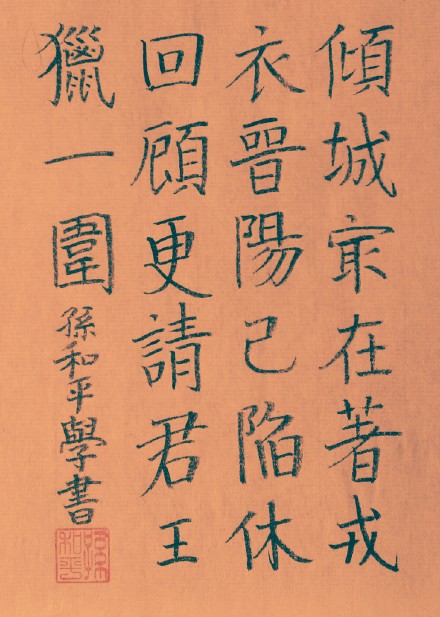 傾城㝡在著戎
衣晉陽已陷休
回頋更請君王
獵一圍
孫和平學書
孫和平